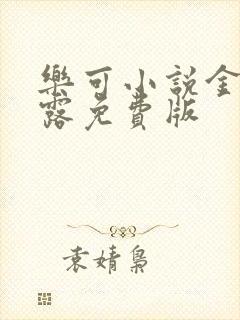 樂可小說金
露免費版
袁婧梟